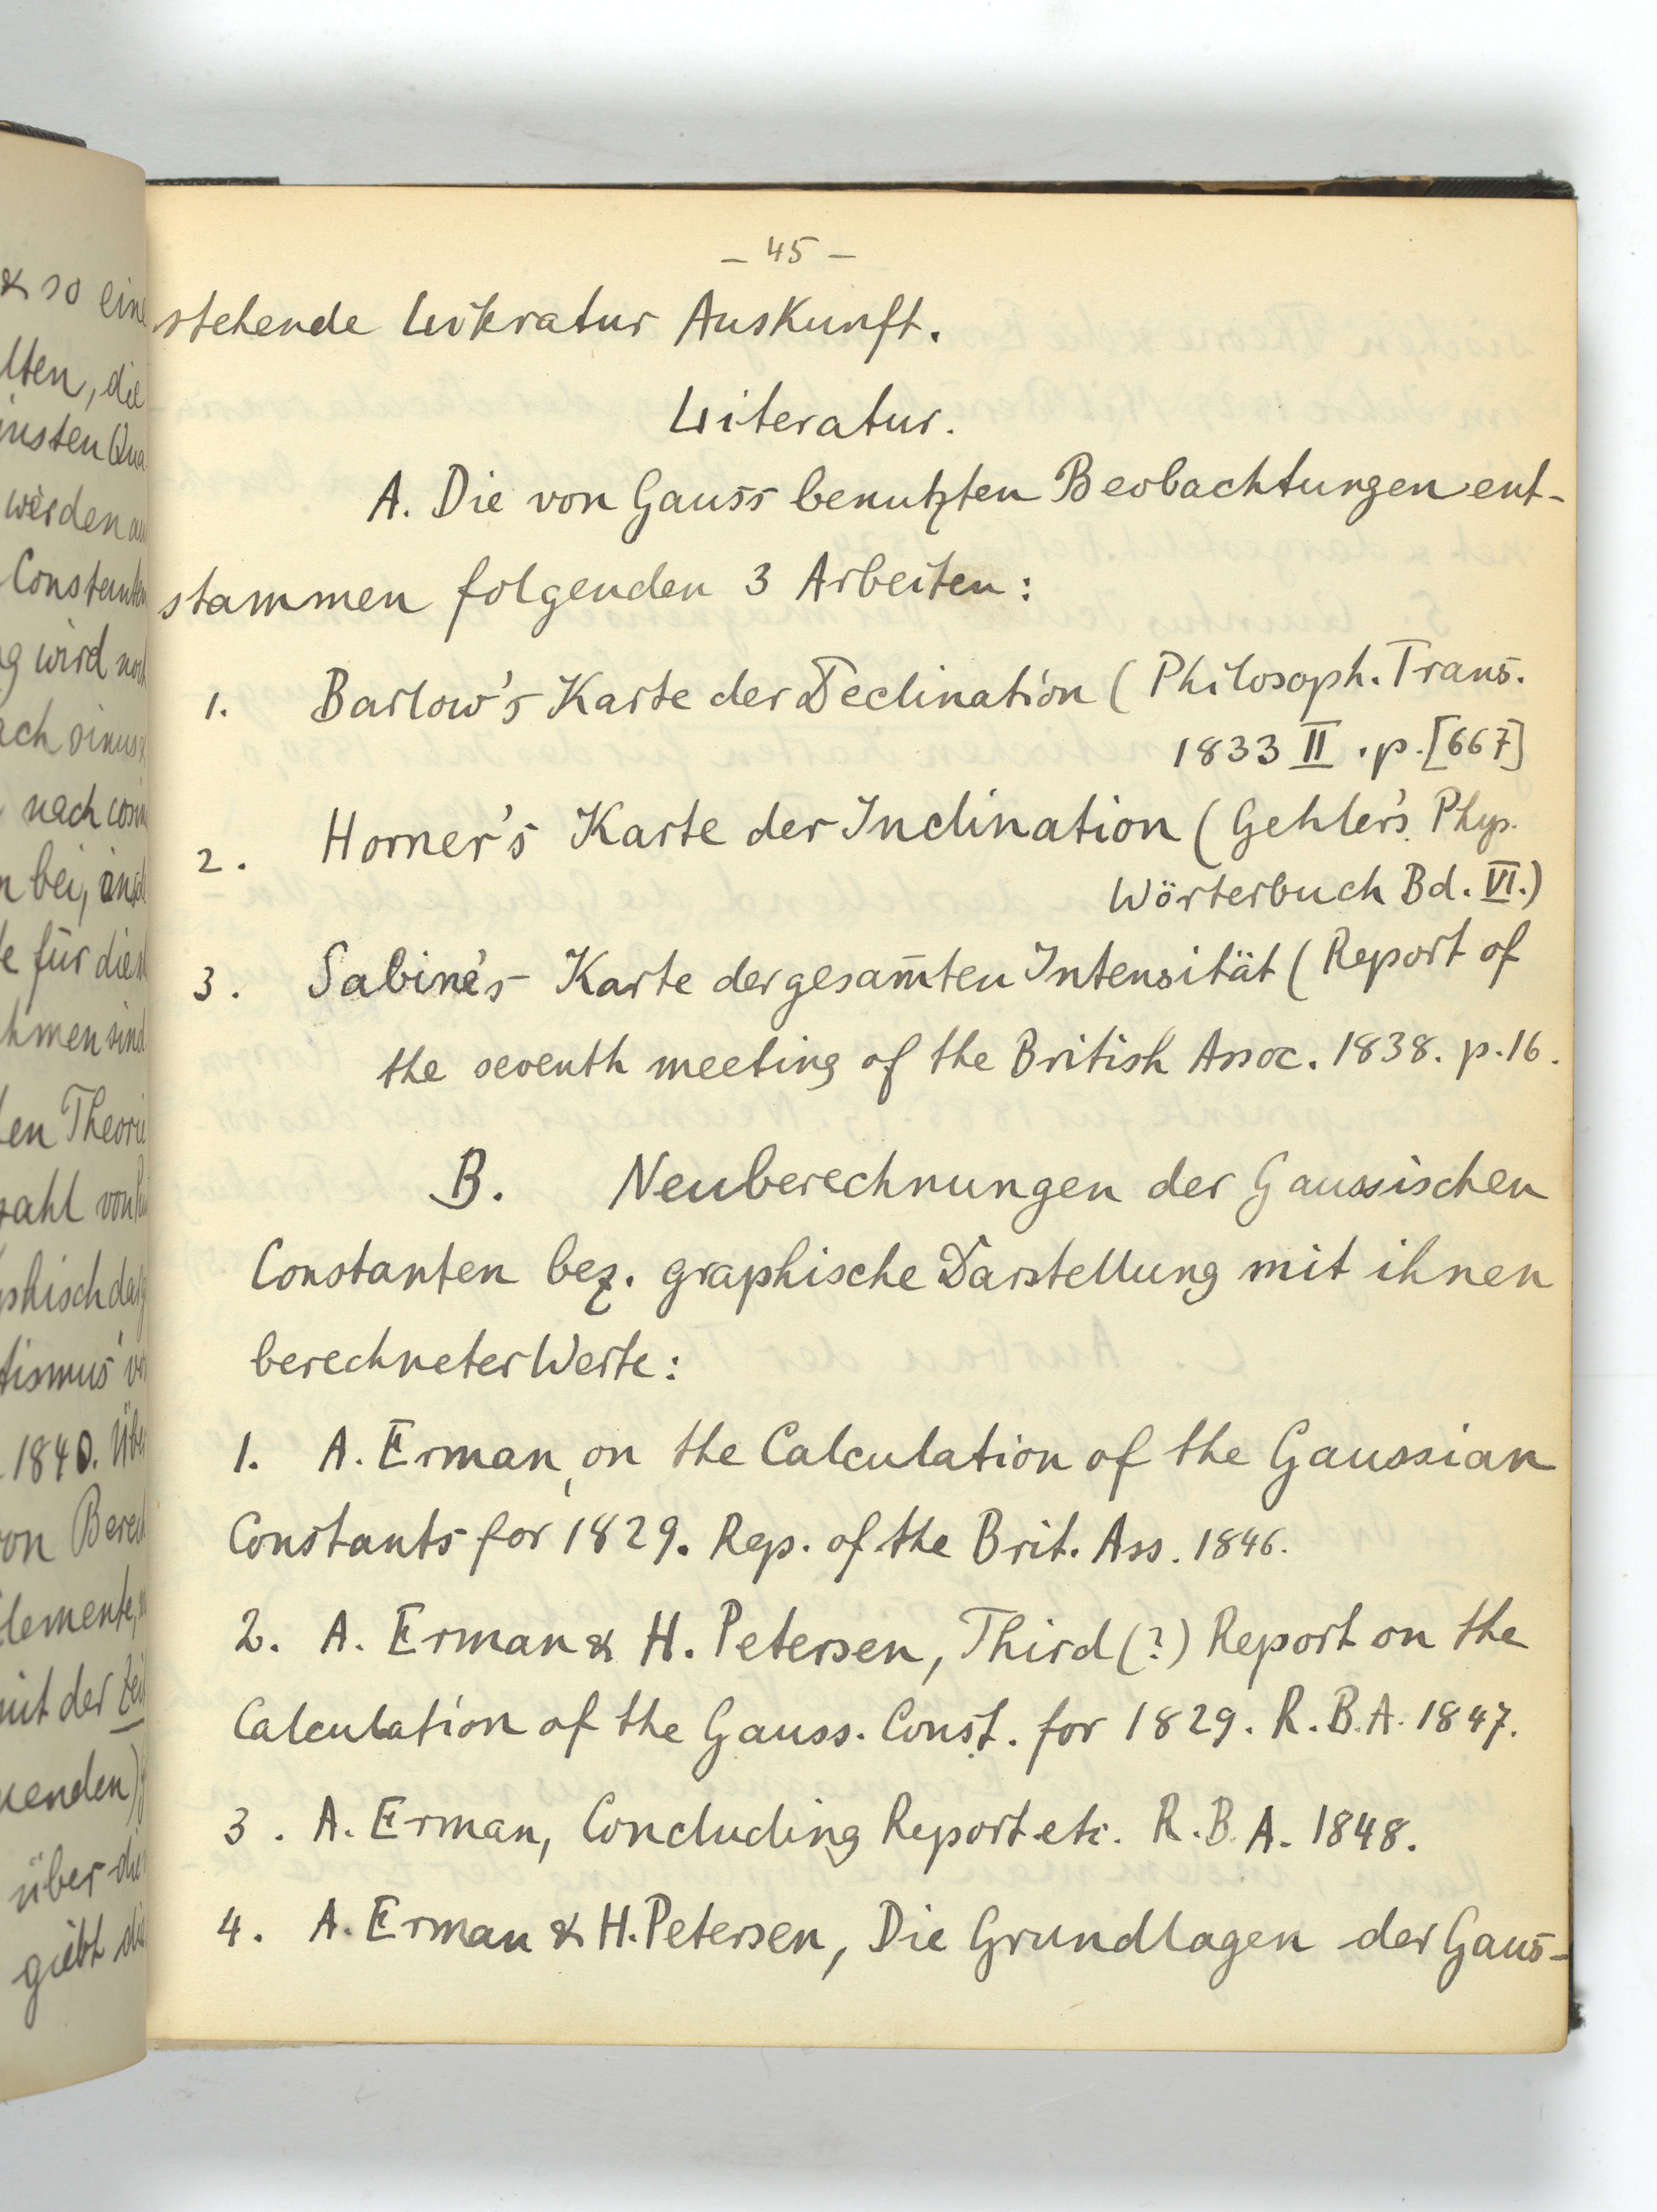 & so eine
lten, die
werden
Constanten
g wird noch
ach sinus &
nach cosin
n bei,
e für diese
hmen sind
en Theorie
zahl von
phisch
tismus
1840. Über
von Berech
lemente,
mit der Zeit
kenden)
über die
giebt die
– 45 –
stehende Literatur Auskunft.
Literatur.
A. Die von Gauss benutzten Beobachtungen ent-
stammen folgenden 3 Arbeiten:
1. Barlow's Karte der Declination (Philosoph. Trans.
1833 II. p. [667]
2. Horner's Karte der Inclination (Gehler's Phys.
Wörterbuch Bd. VI.)
3. Sabine's Karte der gesam̄ten Intensität (Report of
the seventh meeting of the British Assoc. 1838. p. 16.
B. Neuberechnungen der Gaussischen
Constanten bez. graphische Darstellung mit ihnen
berechneter Werte:
1. A. Erman, on the Calculation of the Gaussian
Constants for 1829. Rep. of the Brit. Ass. 1846.
2. A. Erman & H. Petersen, Third (?) Report on the
Calculation of the Gauss. Const. for 1829. R.B.A. 1847.
3. A. Erman, Concluding Report etc. R.B.A. 1848.
4. A. Erman & H. Petersen, Die Grundlagen der Gaus-